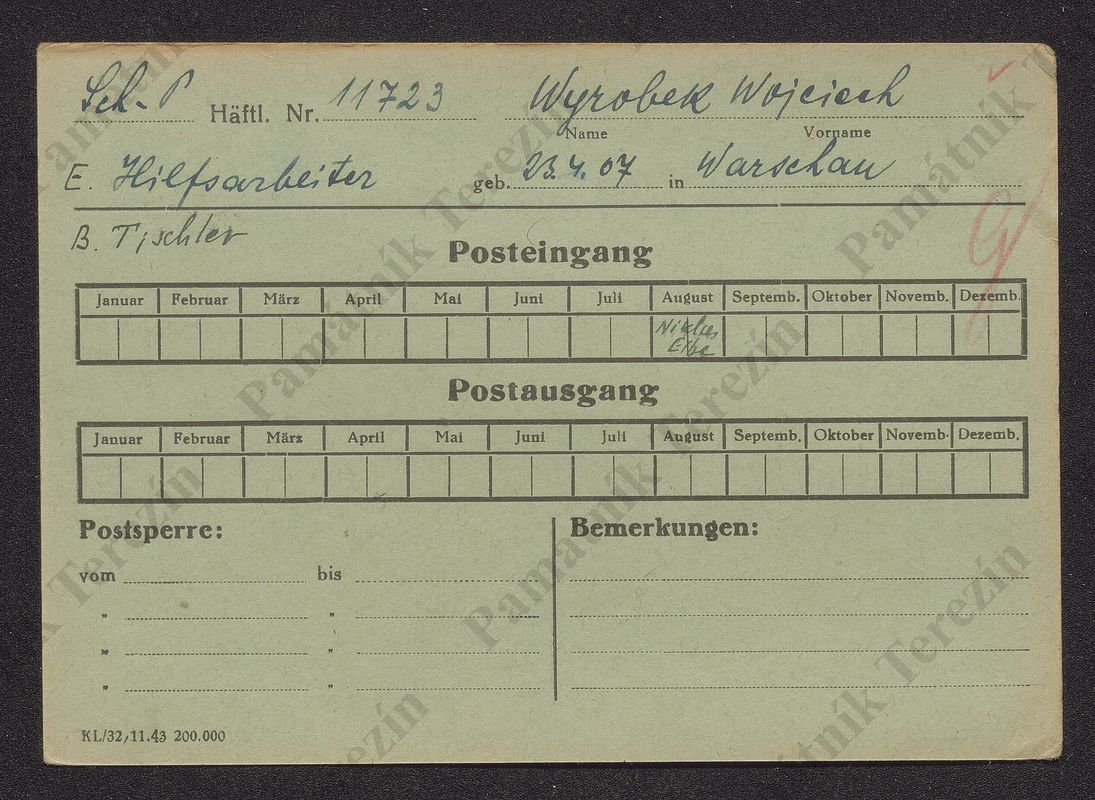 Sch-P Häftl. Nr. 11723 Wyrobek Wojciech
Name Vorname
E. Hilfsarbeiter geb. 23.4.07 in Warschau
B. Tischler
Posteingang
Januar Februar März April Mai Juni Juli August Septemb. Oktober Novemb. Dezemb.
Postausgang
Januar Februar März April Mai Juni Juli August Septemb. Oktober Novemb. Dezemb.
Postsperre: Bemerkungen:
vom bis
" "
" "
" "
KL/32, 11.43 200.000
Památník Terezín